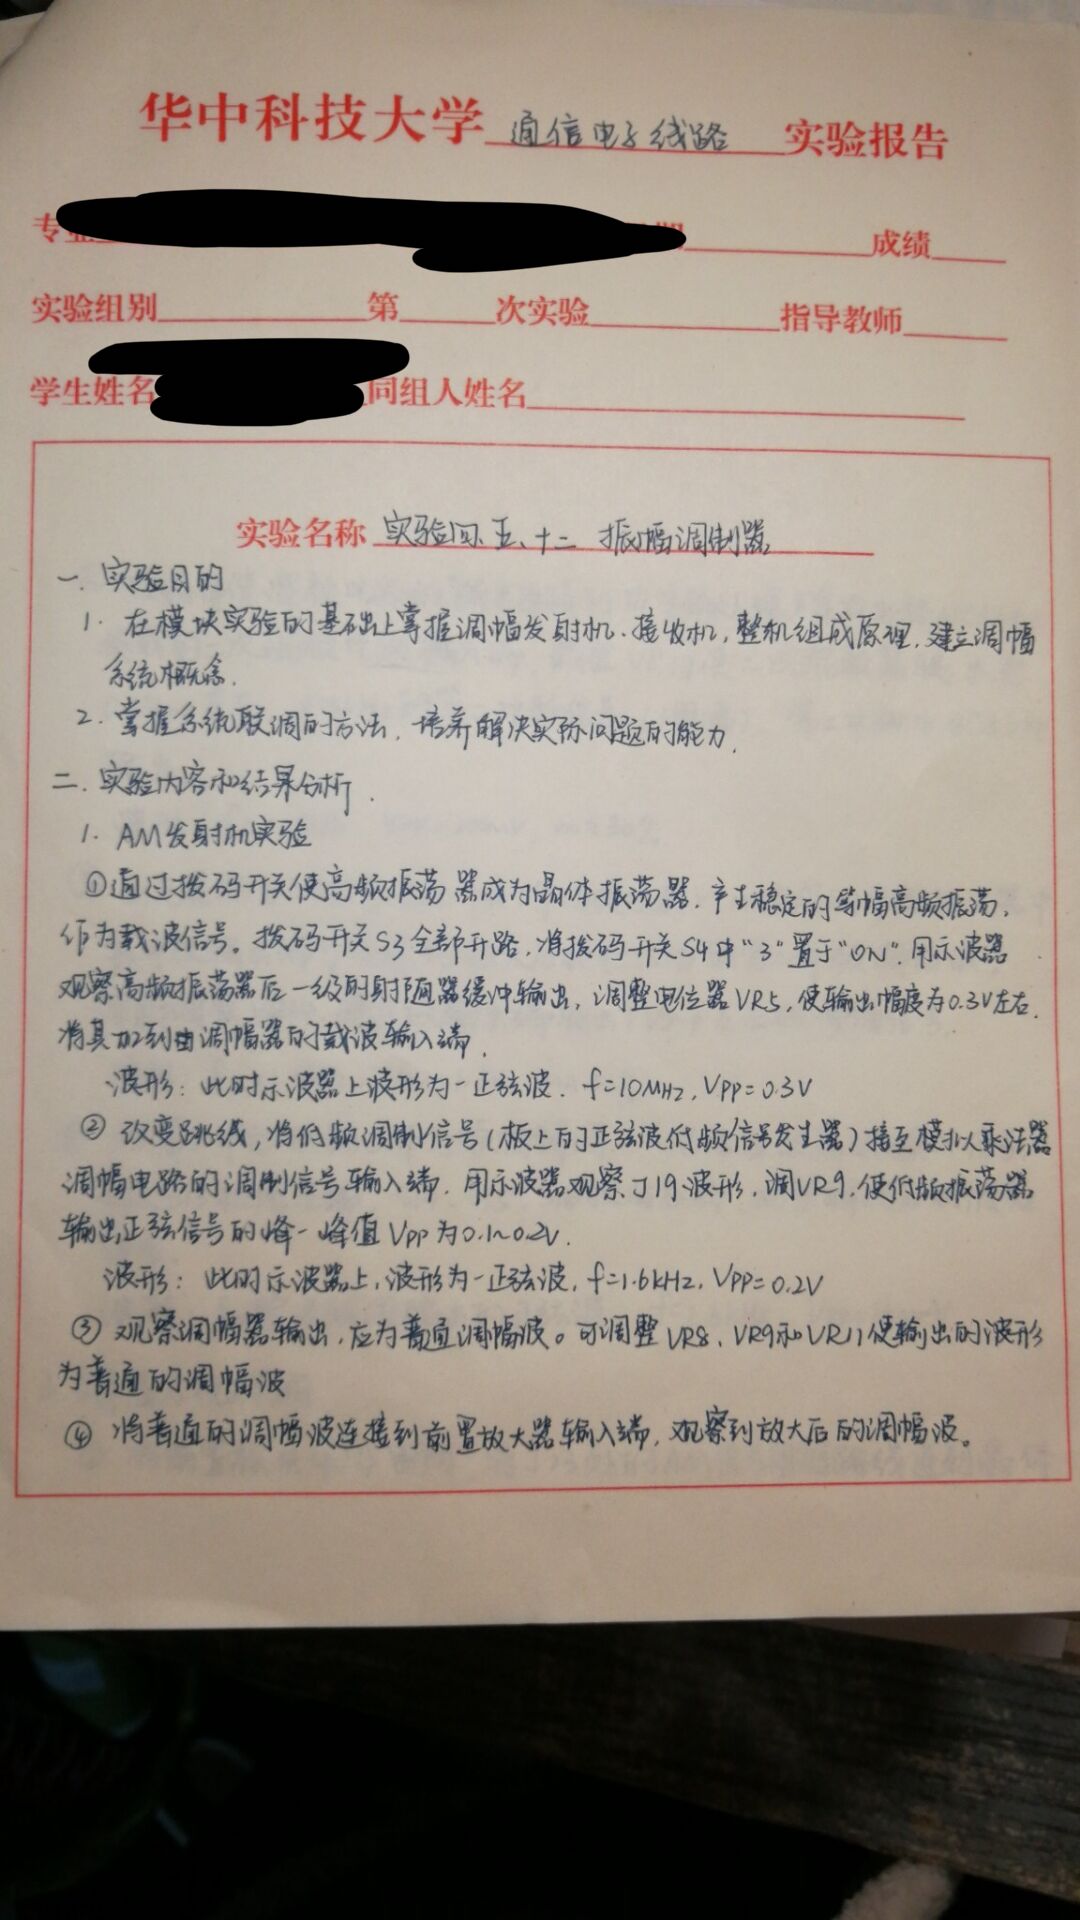 华中科技大学 通信电子线路 实验报告
专业 期 成绩
实验组别 第 次实验 指导教师
学生姓名 同组人姓名
实验名称 实验四、五、十二 振幅调制器
一. 实验目的
1. 在模块实验的基础上掌握调幅发射机、接收机,整机组成原理,建立调幅
系统概念.
2. 掌握系统联调的方法,培养解决实际问题的能力.
二. 实验内容和结果分析.
1. AM发射机实验
①通过拨码开关使高频振荡器成为晶体振荡器,产生稳定的等幅高频振荡,
作为载波信号。拨码开关S3全部开路,将拨码开关S4中“3”置于“ON”.用示波器
观察高频振荡器后一级的射随器缓冲输出,调整电位器VR5,使输出幅度为0.3V左右.
将其加到由调幅器的载波输入端.
波形:此时示波器上波形为一正弦波. f=10MHz, VPP=0.3V
② 改变跳线,将低频调制信号(板上的正弦波低频信号发生器)接至模拟乘法器
调幅电路的调制信号输入端,用示波器观察J19波形,调VR9,使低频振荡器
输出正弦信号的峰-峰值VPP为0.1~0.2V.
波形:此时示波器上,波形为一正弦波, f=1.6kHz, VPP=0.2V
③ 观察调幅器输出,应为普通调幅波。可调整VR8、VR9和VR11使输出的波形
为普通的调幅波
④ 将普通的调幅波连接到前置放大器输入端,观察到放大后的调幅波。